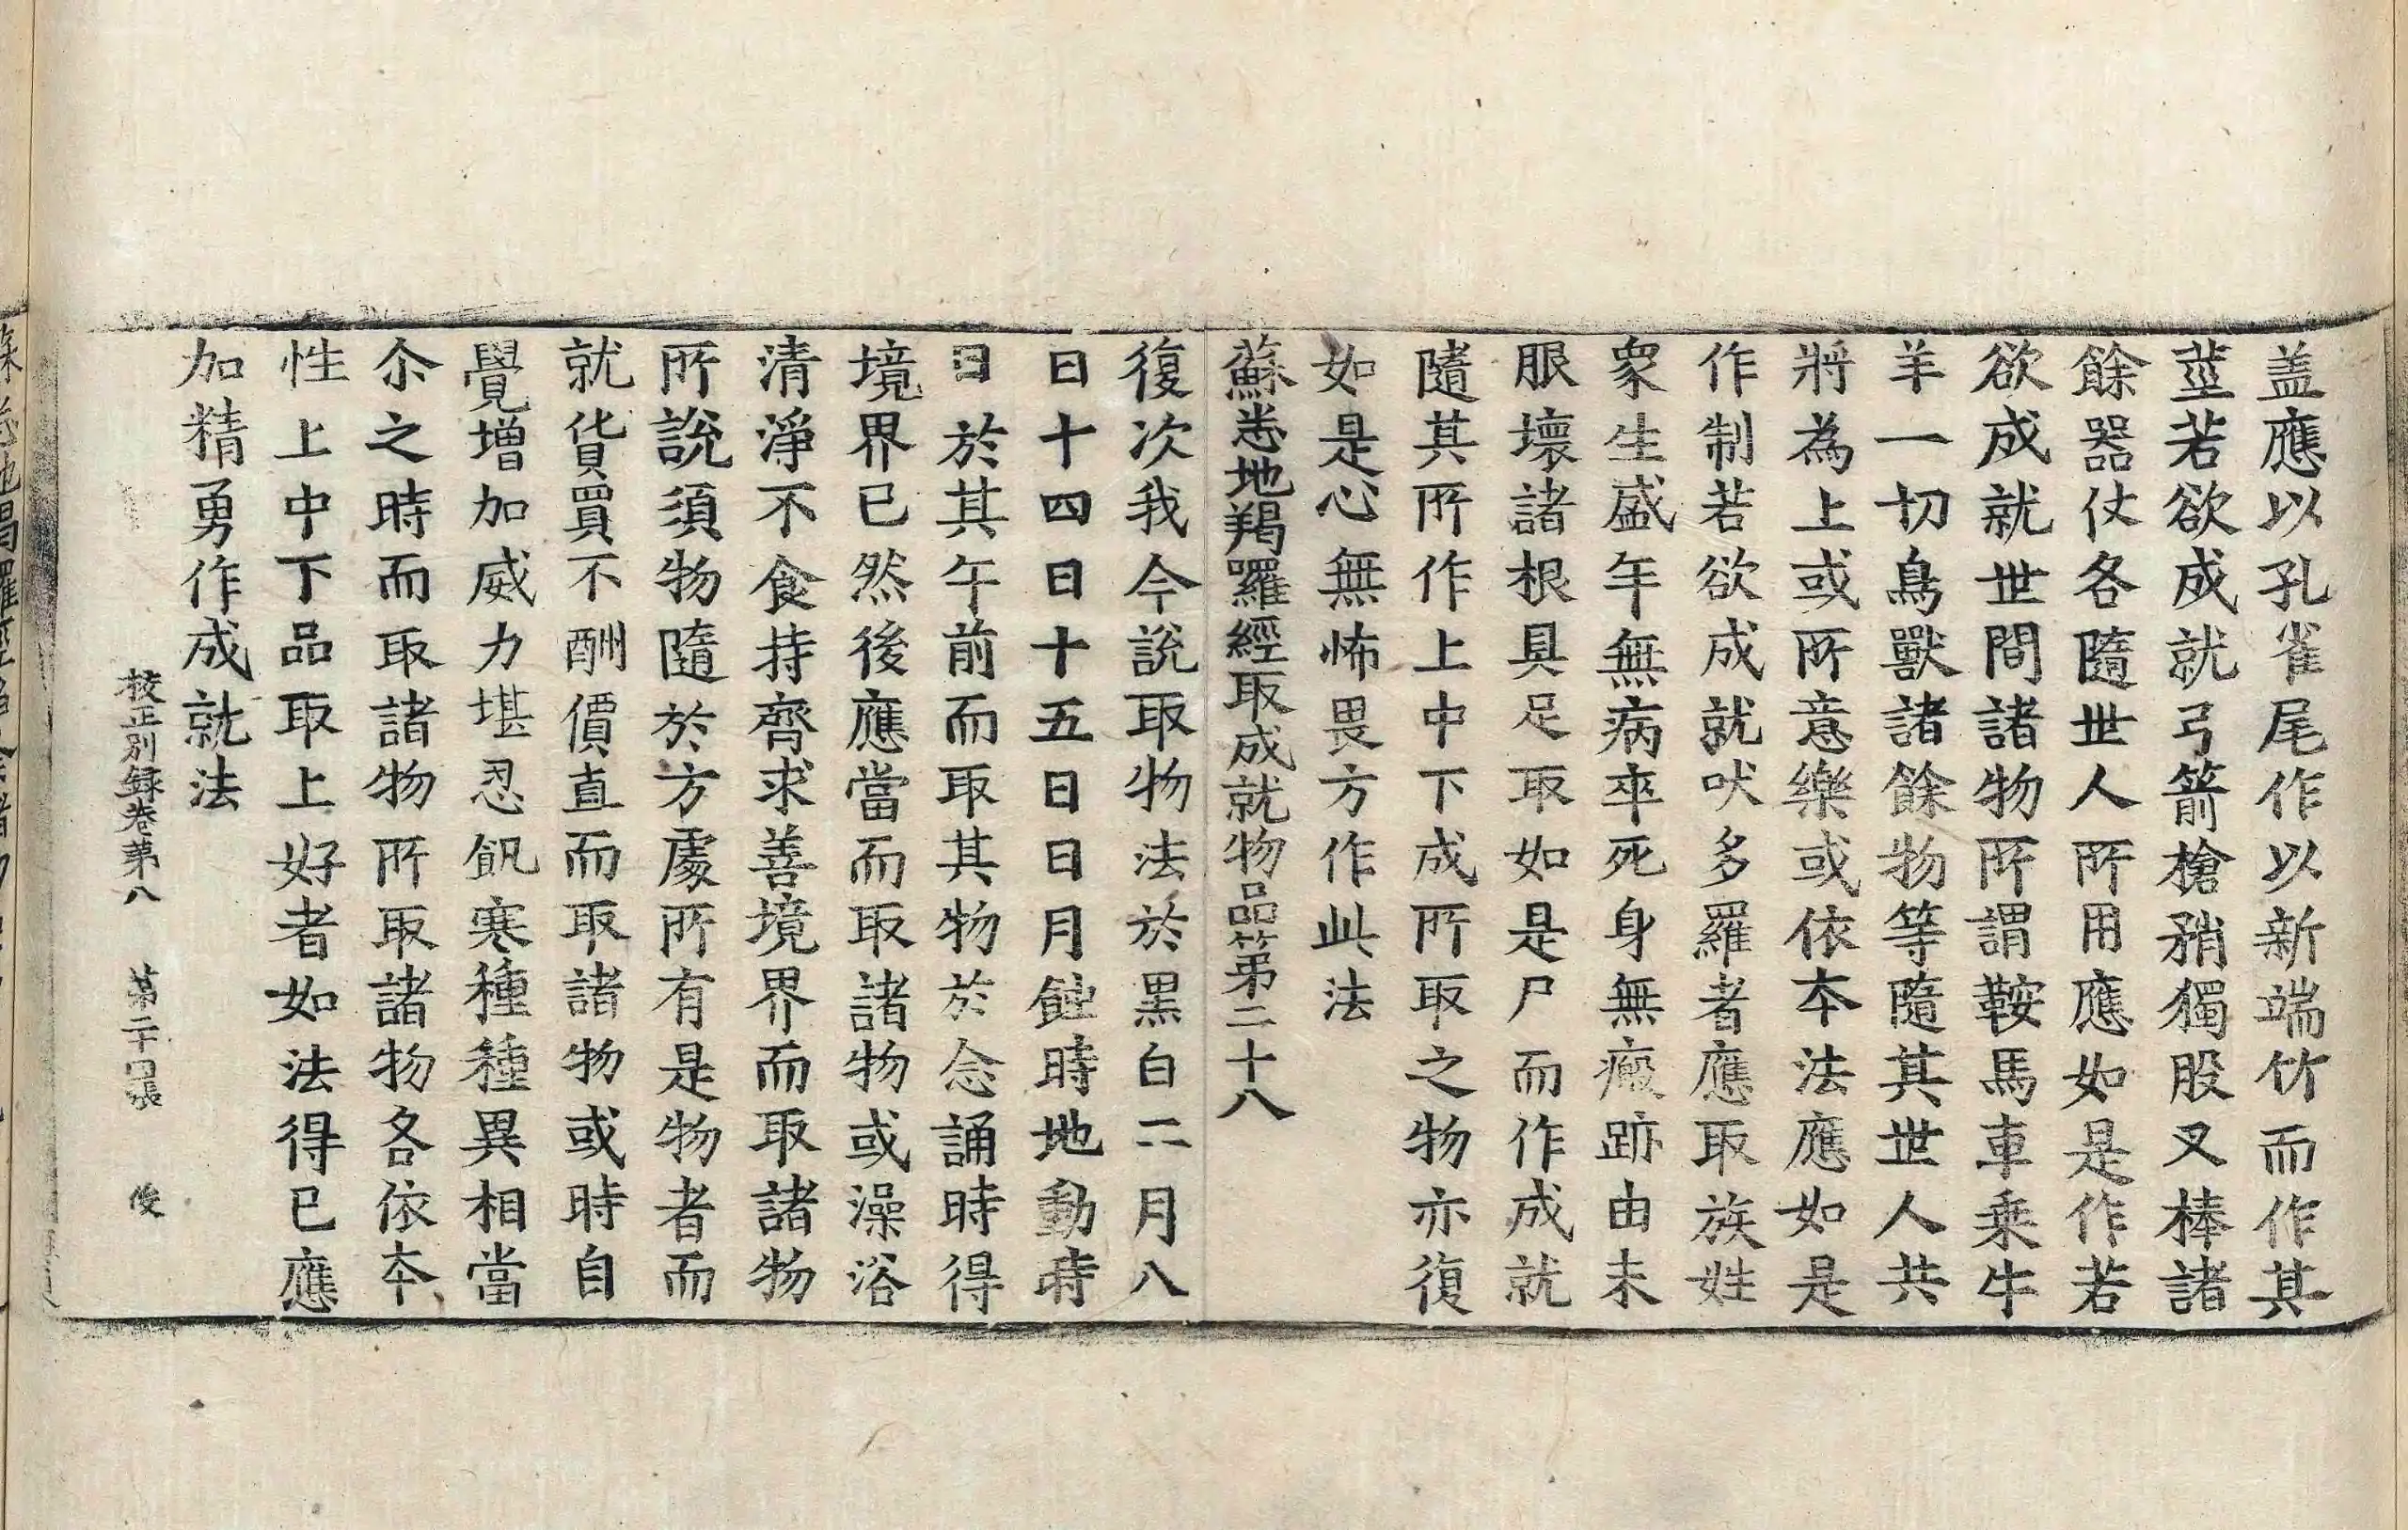 盖應以孔雀尾作以新端竹而作其
莖若欲成就弓箭槍矟獨股叉棒諸
餘器仗各隨世人所用應如是作若
欲成就世間諸物所謂鞍馬車乘牛
羊一切鳥獸諸餘物等隨其世人共
將為上或所意樂或依本法應如是
作制若欲成就吠多羅者應取族姓
衆生盛年無病卒死身無瘢跡由未
眼壞諸根具足取如是尸而作成就
隨其所作上中下成所取之物亦復
如是心無怖畏方作此法
蘇悉地羯囉經取成就物品第二十八
復次我今說取物法於黑白二月八
日十四日十五日日月蝕時地動時
日於其午前而取其物於念誦時得
境界已然後應當而取諸物或澡浴
清淨不食持齊求善境界而取諸物
所說須物隨於方處所有是物者而
就貨買不酬價直而取諸物或時自
覺增加威力堪忍飢寒種種異相當
尒之時而取諸物所取諸物各依本
性上中下品取上好者如法得已應
加精勇作成就法
校正別録卷第八 第二十口張 俊